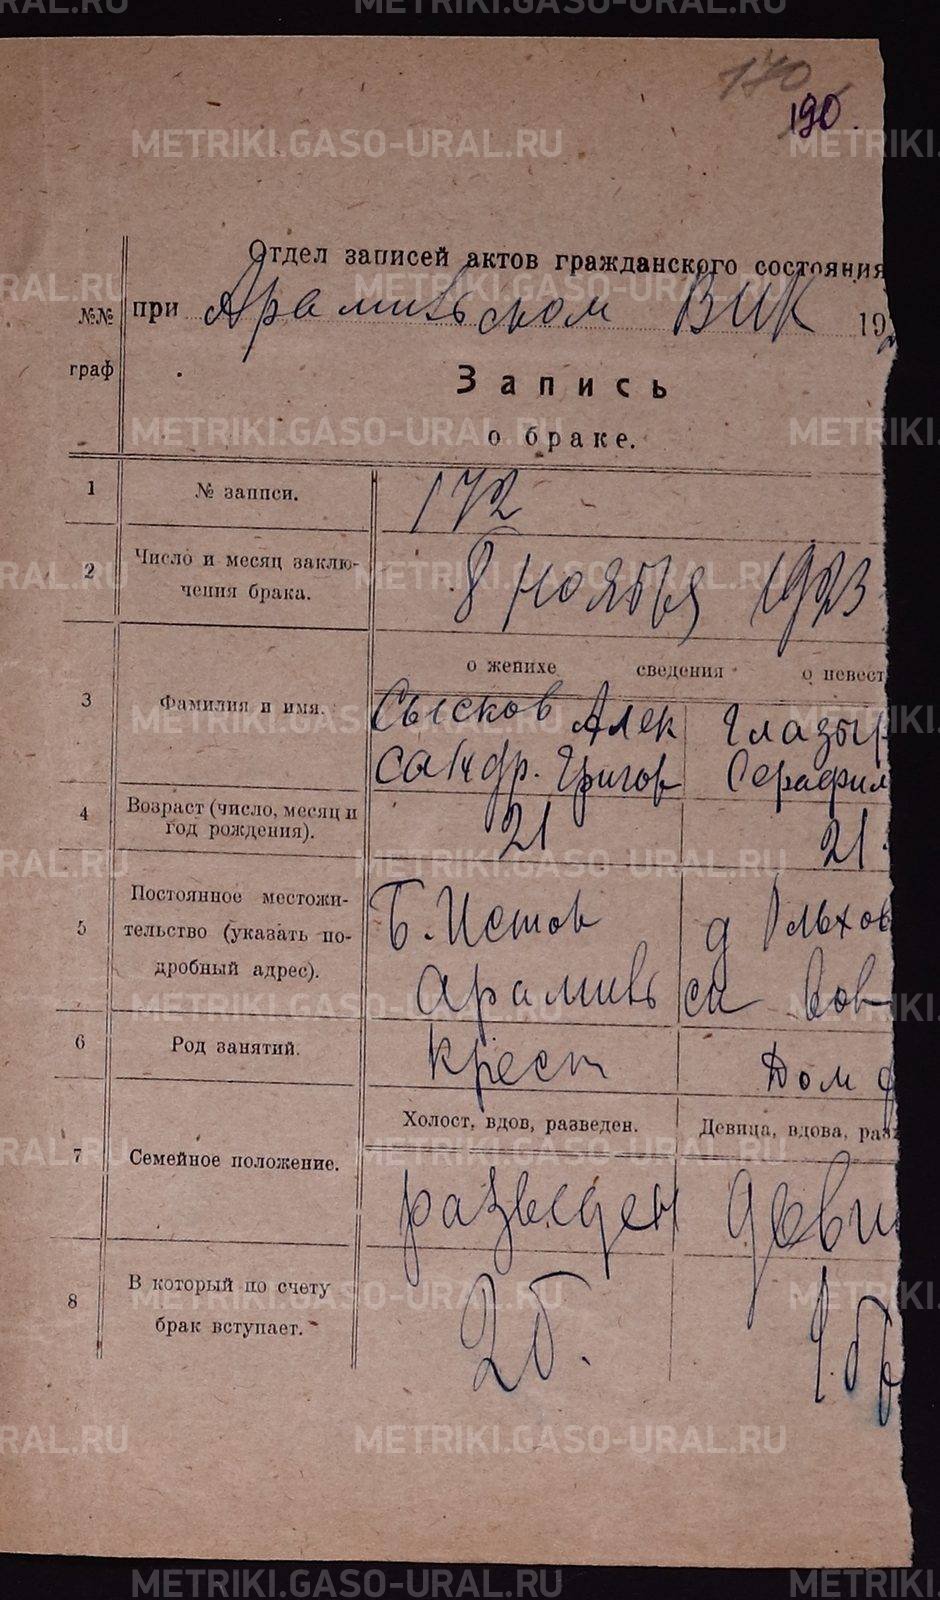 170
190.
Отдел записей актов гражданского состояния
при Арамильском ВИК 192
№№ граф
Запись
о браке.
1 № записи. 172
2 Число и месяц заключения брака. 8 ноября 1923
о женихе сведения о невест
3 Фамилия и имя. Сысков Алек Глазыр
сандр. Григор Серафим
4 Возраст (число, месяц и год рождения). 21 21.
5 Постоянное местожительство (указать подробный адрес). Б. Исток д Ольхов
Арамильск вол
6 Род занятий. Крест Дом
Холост, вдов, разведен. Девица, вдова, раз
7 Семейное положение. разведен деви
8 В который по счету брак вступает. 2б. 1. бр
METRIKI.GASO-URAL.RU